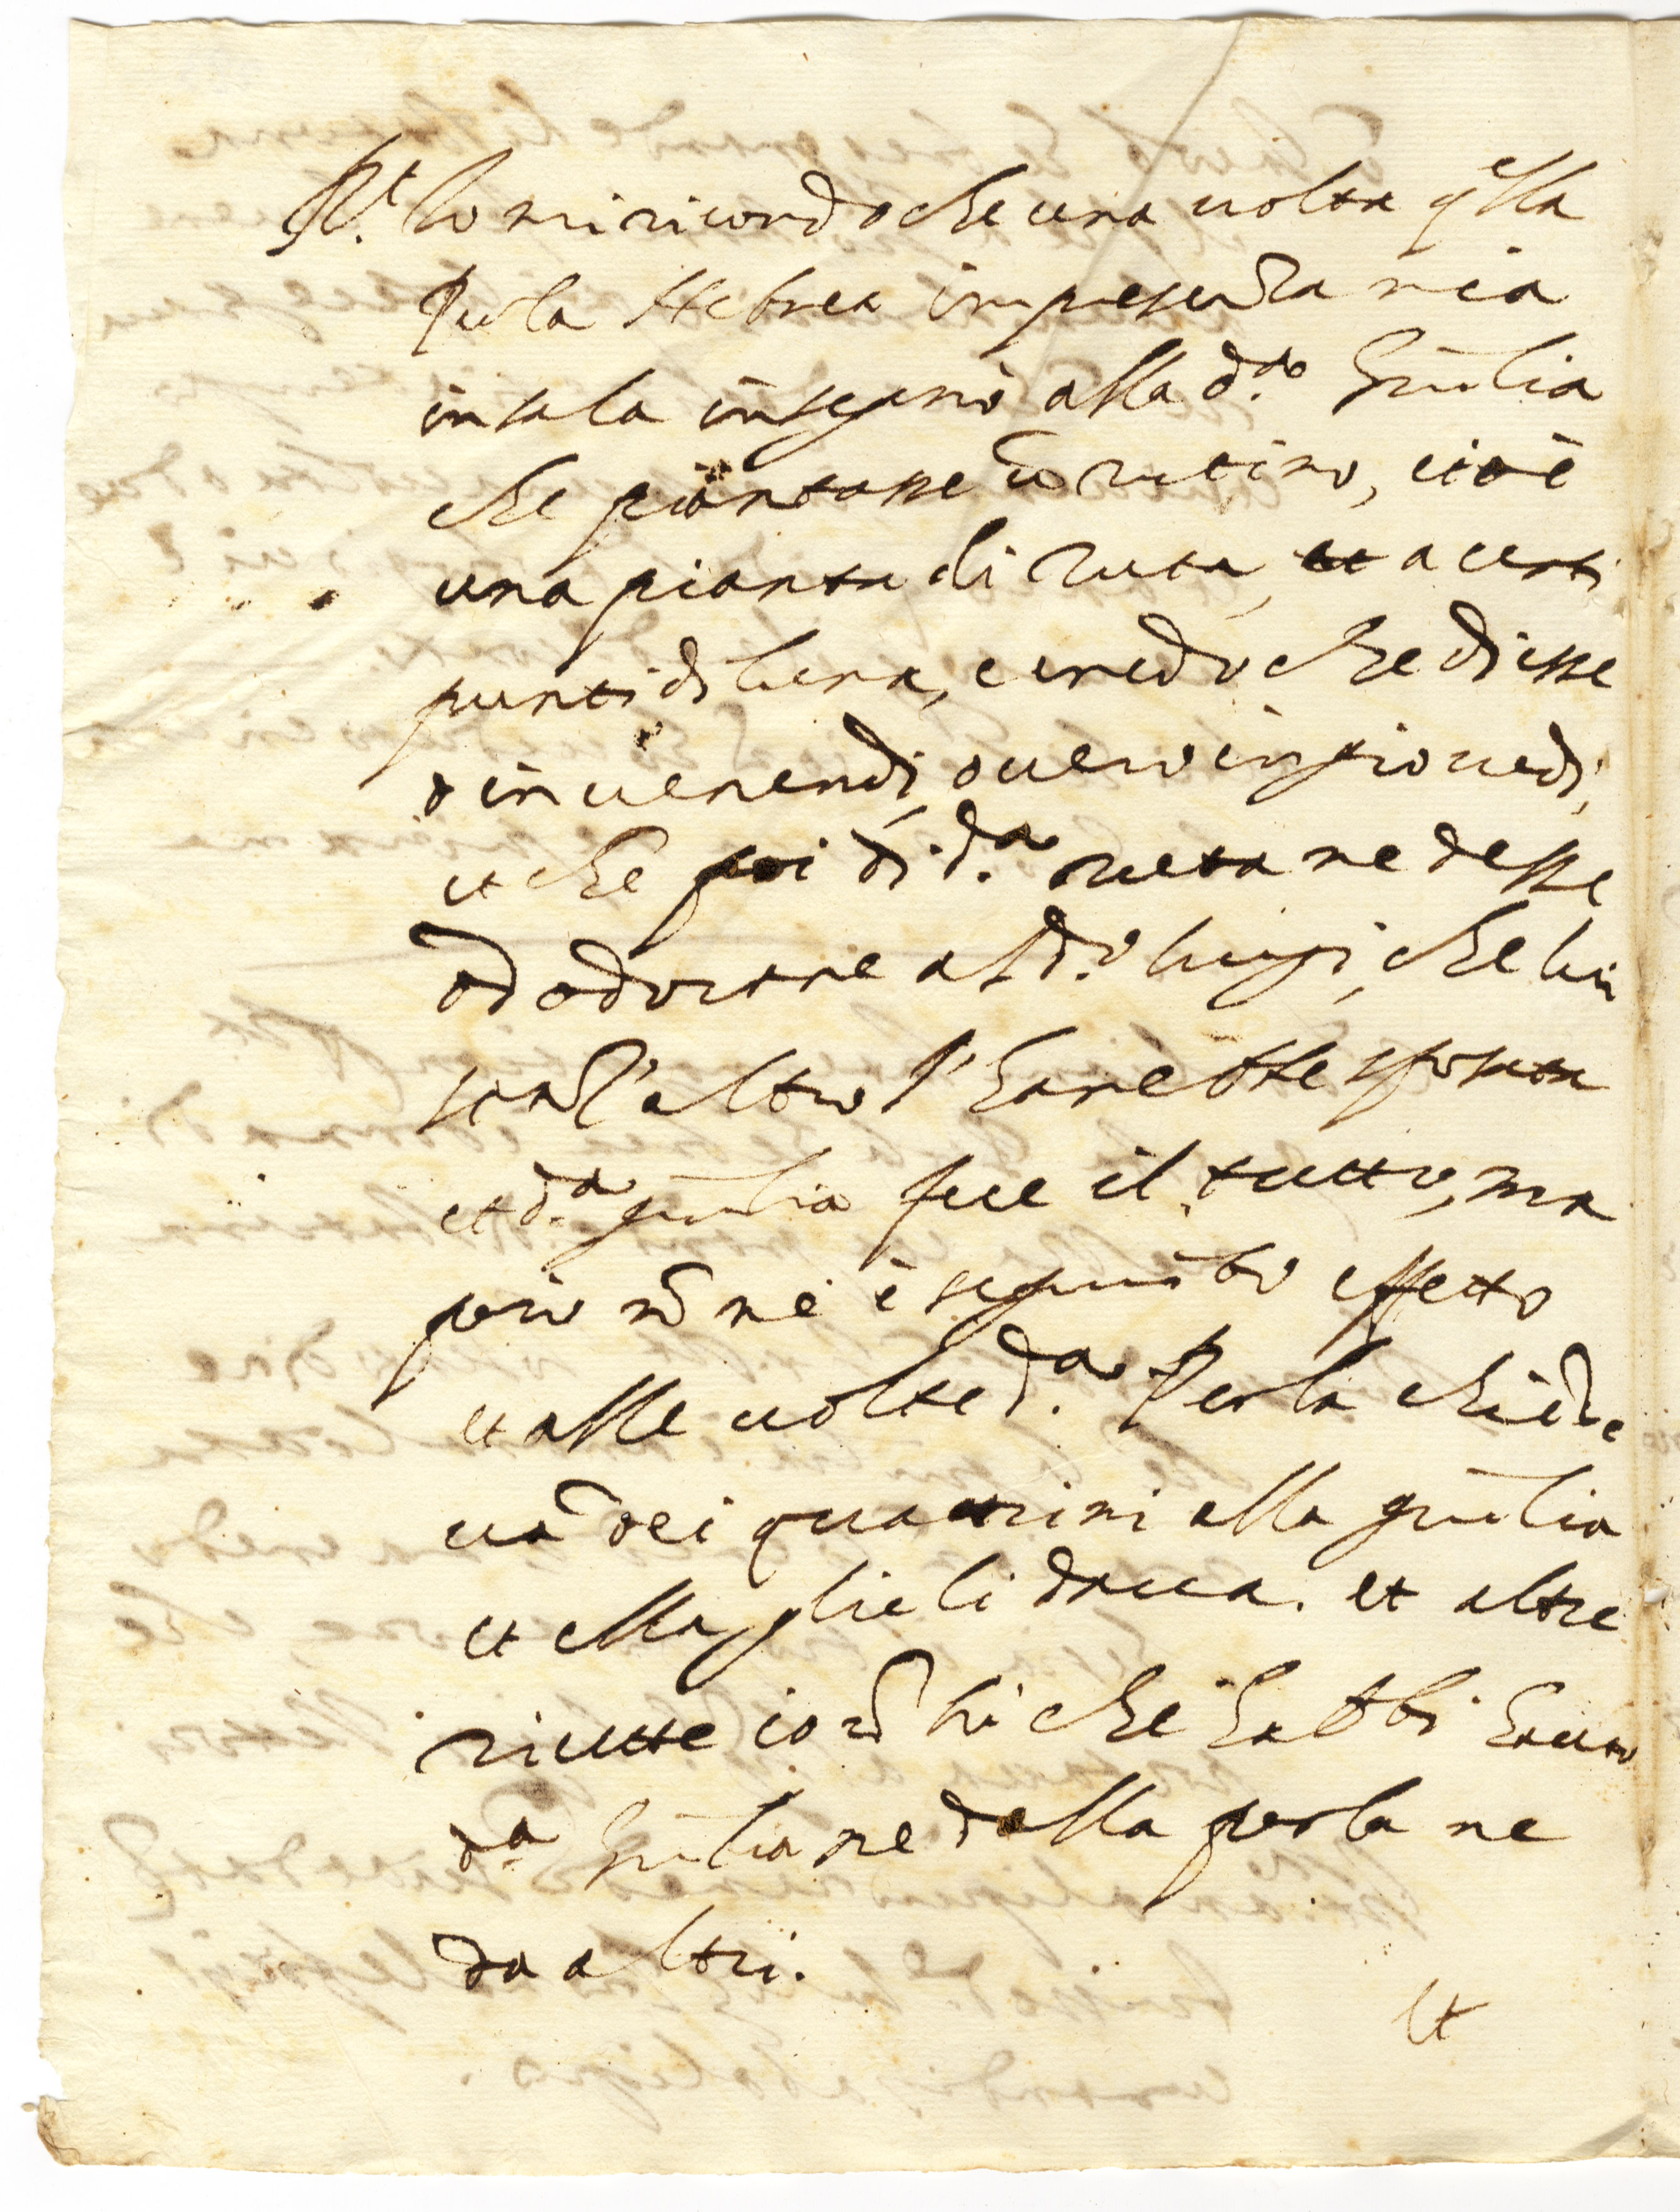 R.t Io mi ricordo che una uolta q.ella
Perla Hebrea in presenza mia
in sala insegnò alla d.a Giulia
che piantasse ũ rutino, cioè
una pianta di ruta, et a certi
punti di luna, e credo che disse
o in uenerdi, ouero in giouedi,
et che poi di d.a ruta ne desse
ad odorare al d.o luigi, che lui
senz'altro l'hauerebbe sposata
et d.a giulia fece il tutto, ma
però nõ ne è seguito effetto
et alle uolte d.a Perla chiede
ua dei quattrini alla giulia
et ella glieli daua. et altre
ricette io nõ sò che habbi hauto
d.a Giulia ne dalla perla ne
da altri.
Et